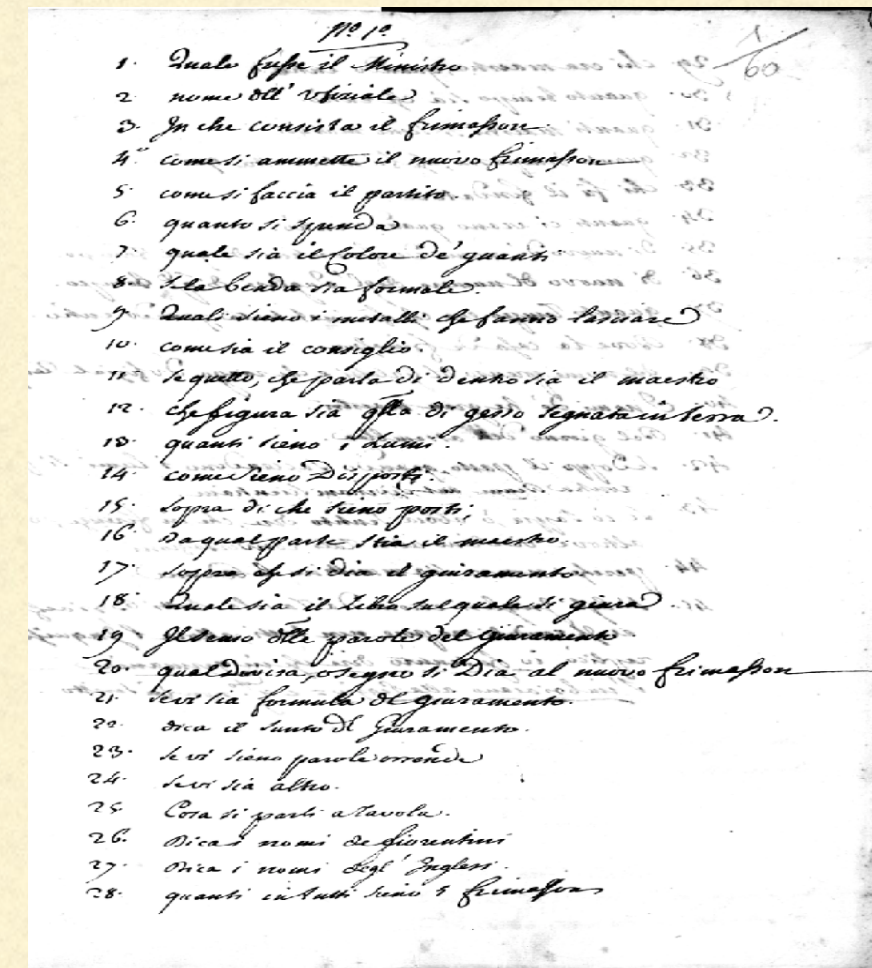 Nº 1º.
1/60
1. Quale fusse il Ministro
2. nome dll' Vfiziale
3. In che consista il frimasson.
4. come si ammette il nuovo frimasson
5. come si faccia il partito.
6. quanto si spenda
7. quale sia il Colore de' guanti
8. se la benda sia formale.
9. Quali sieno i metalli che fanno lasciare
10. come sia il consiglio.
11. se quello, che parla di dentro sia il maestro
12. che figura sia qlla di gesso segnata in terra.
13. quanti sieno i Lumi.
14. come sieno Disposti.
15. sopra di che sieno posti.
16. Da qual parte stia il maestro.
17. sopra che si dia il giuramento
18. Quale sia il libro sul quale si giura
19. Il senso dlle parole del Giuramento
20. qual Divisa, o segno si Dia al nuovo frimasson
21. se vi sia formula dl giuramento.
22. dica il sunto dl Giuramento.
23. se vi sieno parole orrende
24. se vi sia altro.
25. Cosa si parli a Tavola.
26. Dica i nomi de fiorentini
27. Dica i nomi degl' Inglesi.
28. quanti in tutti sieno i frimasson